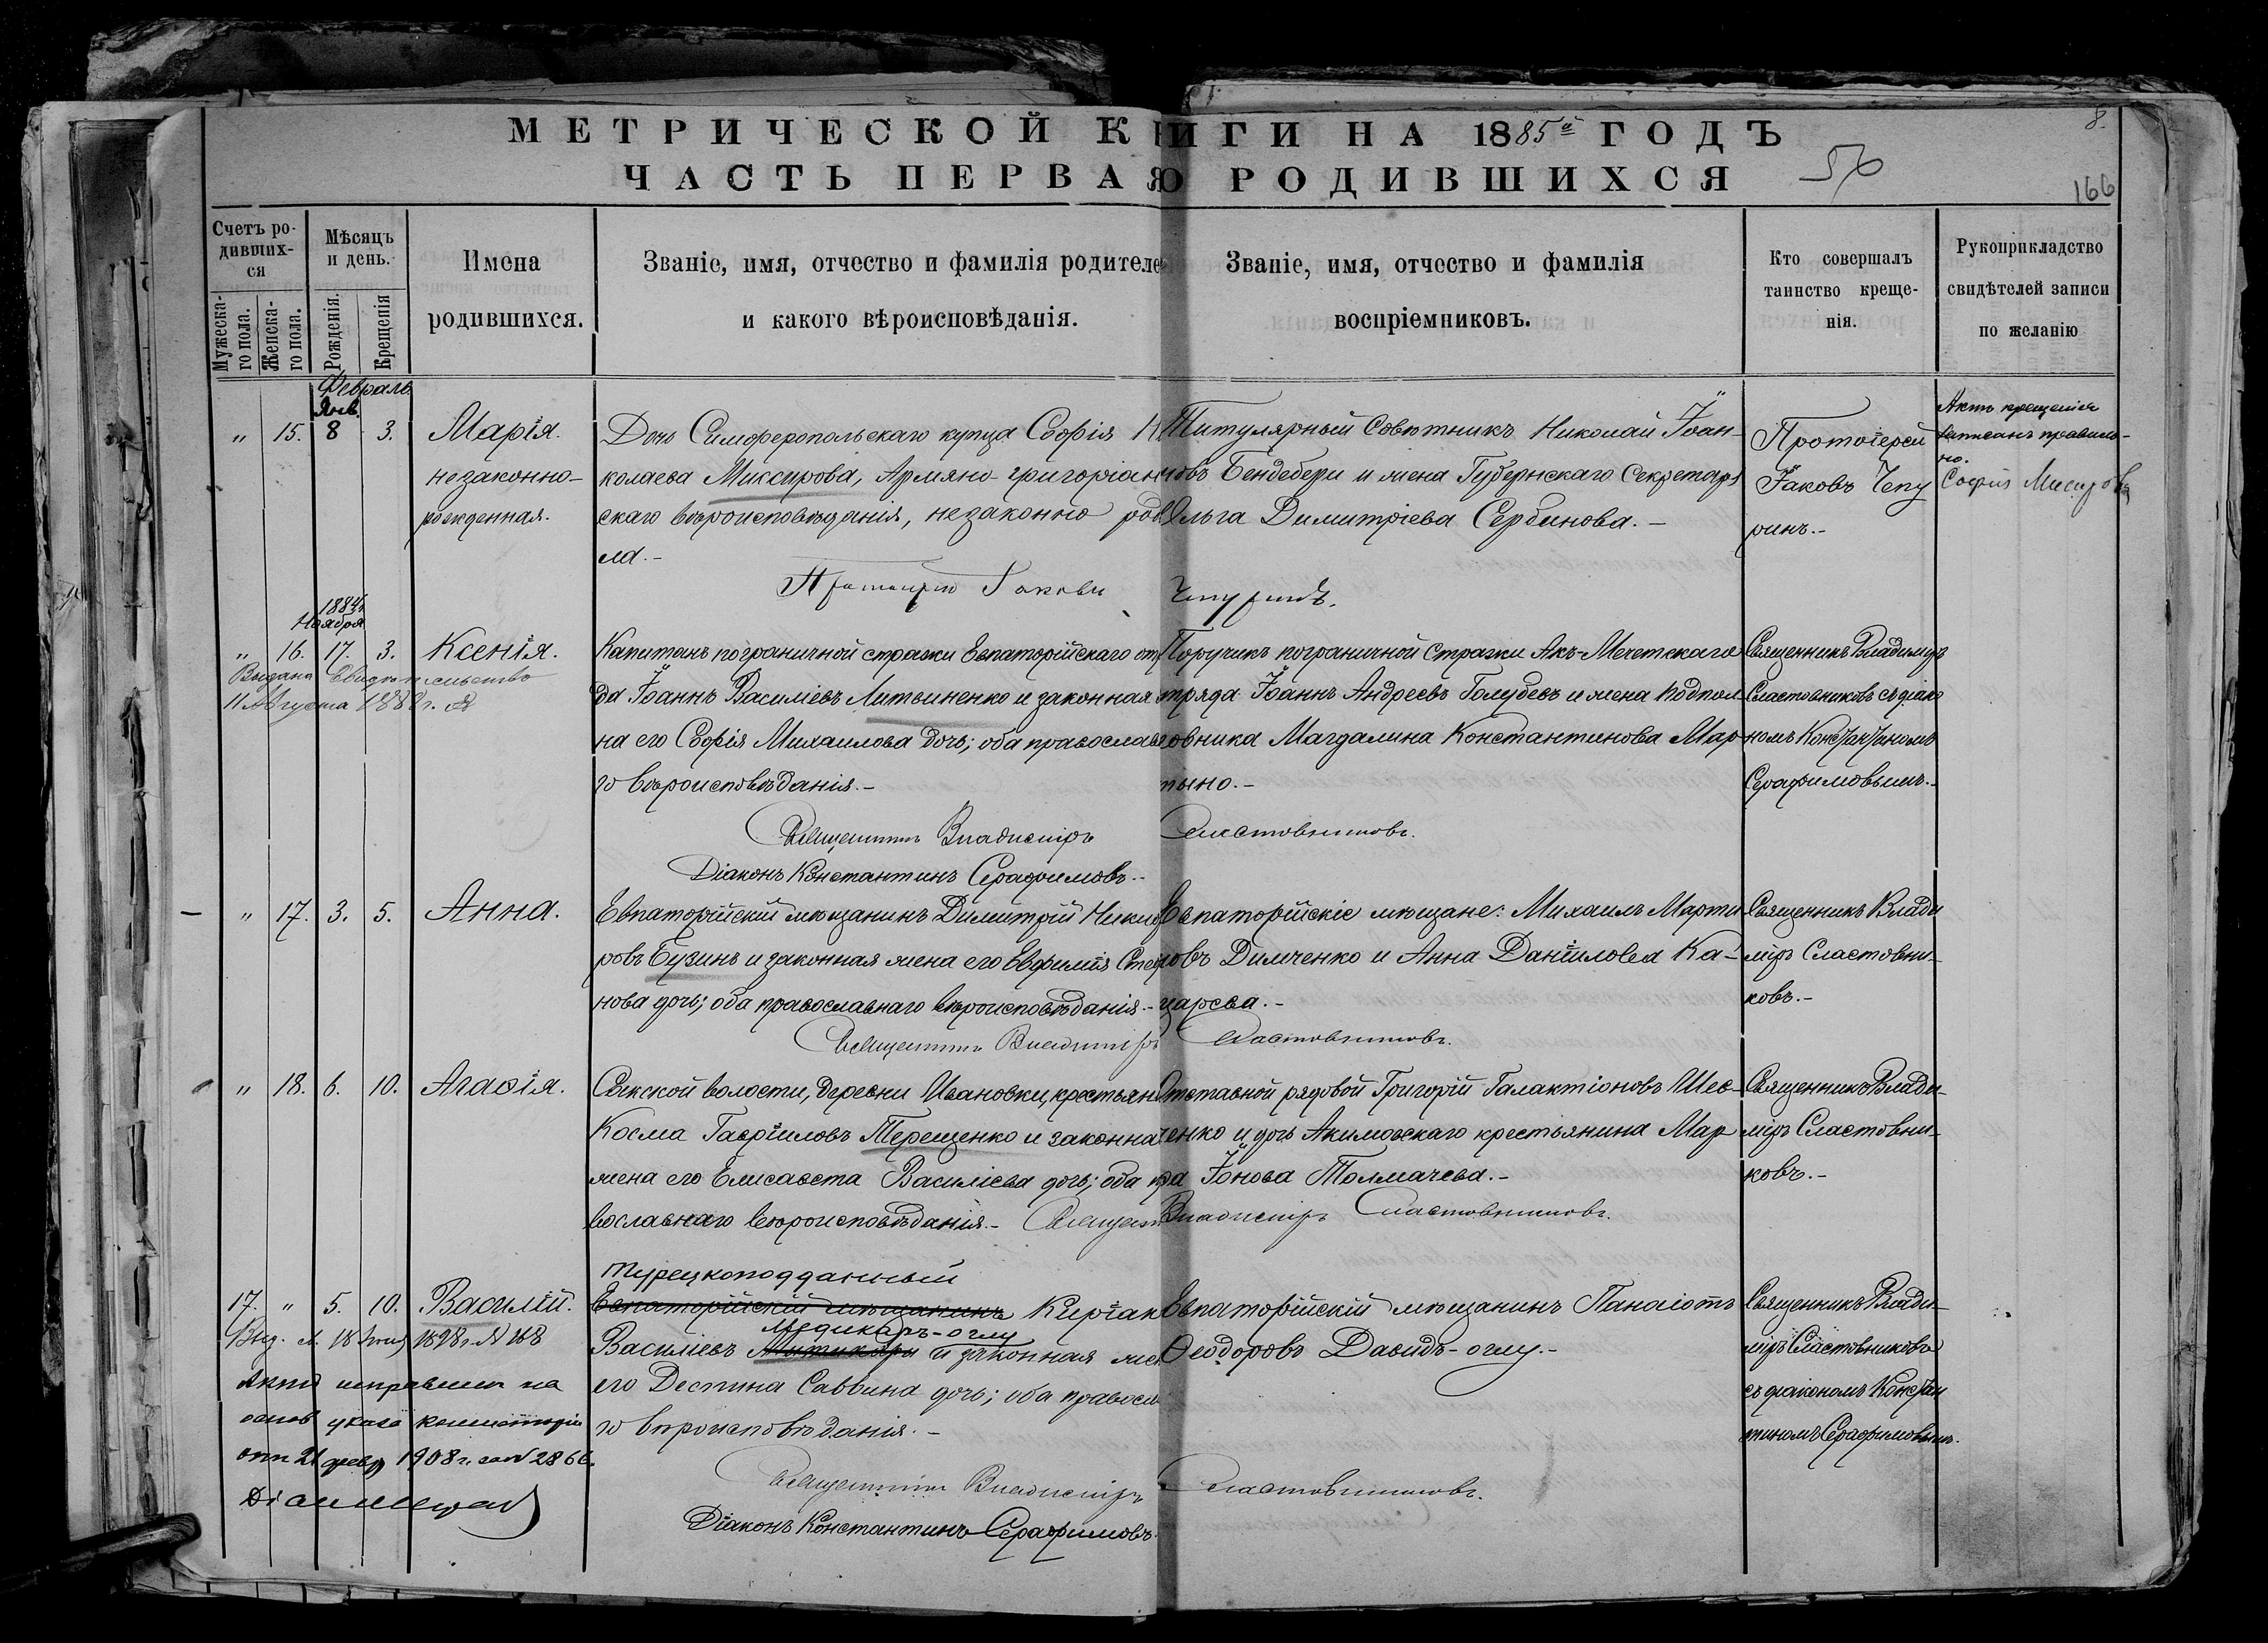 МЕТРИЧЕСКОЙ КНИГИ НА 1885й ГОДЪ
ЧАСТЬ ПЕРВАЯ О РОДИВШИХСЯ
8.
56
166
Счетъ родивших-
ся
Мужеска-
го пола.
Женска-
го пола.
Мѣсяцъ
и день.
Рожденія.
Крещенія
Имена
родившихся.
Званіе, имя, отчество и фамилія родителе
и какого вѣроисповѣданія.
Званіе, имя, отчество и фамилія
воспріемниковъ.
Кто совершалъ
таинство креще-
нія.
Рукоприкладство
свидѣтелей записи
по желанію
Февраль.
Янв.
" 15. 8 3.
Марія.
незаконно-
рожденная.
Дочь Симферопольскаго купца Софія Ни
колаева Миксирова, Армяно-григоріан
скаго вѣроисповѣданія, незаконно роди
ла.-
Титулярный Совѣтникъ Николай Іоан-
новъ Бендебери и жена Губернскаго Секретаря
Ольга Димитріева Сербинова.-
Протоіерей
Іаковъ Чепу
ринъ.-
Актъ крещенія
записанъ правиль-
но.
Софія Мисирова
Протоіерей Іаковъ Чепуринъ.
1884г.
Ноября
" 16. 17. 3.
Ксенія.
Выдано Свидѣтельство
11 Августа 1888г.
Капитанъ пограничной стражи Евпаторійскаго отр
да Іоаннъ Василіевъ Литвиненко и законная
на его Софія Михаилова дочь; оба православ
го вѣроисповѣданія.-
Поручикъ пограничной Стражи Акъ-Мечетскаго
отряда Іоаннъ Андреевъ Голубевъ и жена Подпол
ковника Магдалина Константинова Мар
тыно.-
Священникъ Владиміръ
Сластовниковъ съ діако
номъ Константиномъ
Серафимовымъ.-
Священникъ Владиміръ Сластовниковъ.
Діаконъ Константинъ Серафимовъ.-
" 17. 3. 5.
Анна.
Евпаторійскій мѣщанинъ Димитрій Никиф
ровъ Бузинъ и законная жена его Евфимія Сте
нова дочь; оба православнаго вѣроисповѣданія.-
Евпаторійскіе мѣщане: Михаилъ Марти
новъ Димченко и Анна Даніилова Ка-
царева.-
Священникъ Влади
міръ Сластовни-
ковъ.-
Священникъ Владиміръ Сластовниковъ.
" 18. 6. 10.
Агафія.
Сакской волости, деревни Ивановки, крестьян
Косма Гавріиловъ Терещенко и законна
жена его Елисавета Василіева дочь; оба пра
вославнаго вѣроисповѣданія.-
Отставной рядовой Григорій Галактіоновъ Шев-
ченко и дочь Акимовскаго крестьянина Мар
Іонова Толмачева.-
Священникъ Влади-
міръ Сластовни-
ковъ.-
Священ Владиміръ Сластовниковъ.
17. " 5. 10.
Василій.
Выд. м. 18 1898г. № 168
Актъ исправленъ на
основ указа консисторіи
отъ 21 февр 1908г. за № 2866.
турецкоподданный
Евпаторійскій мѣщанинъ Киріак
Медикаръ-оглу
Василіевъ и законная же
его Деспина Саввина дочь; оба правосл
го вѣроисповѣданія.-
Евпаторійскій мѣщанинъ Панаіотъ
Ѳеодоровъ Давидъ-оглу.-
Священникъ Влади-
міръ Сластовниковъ
съ діакономъ Констан
тиномъ Серафимовымъ.
Священникъ Владиміръ Сластовниковъ.
Діаконъ Константинъ Серафимовъ.